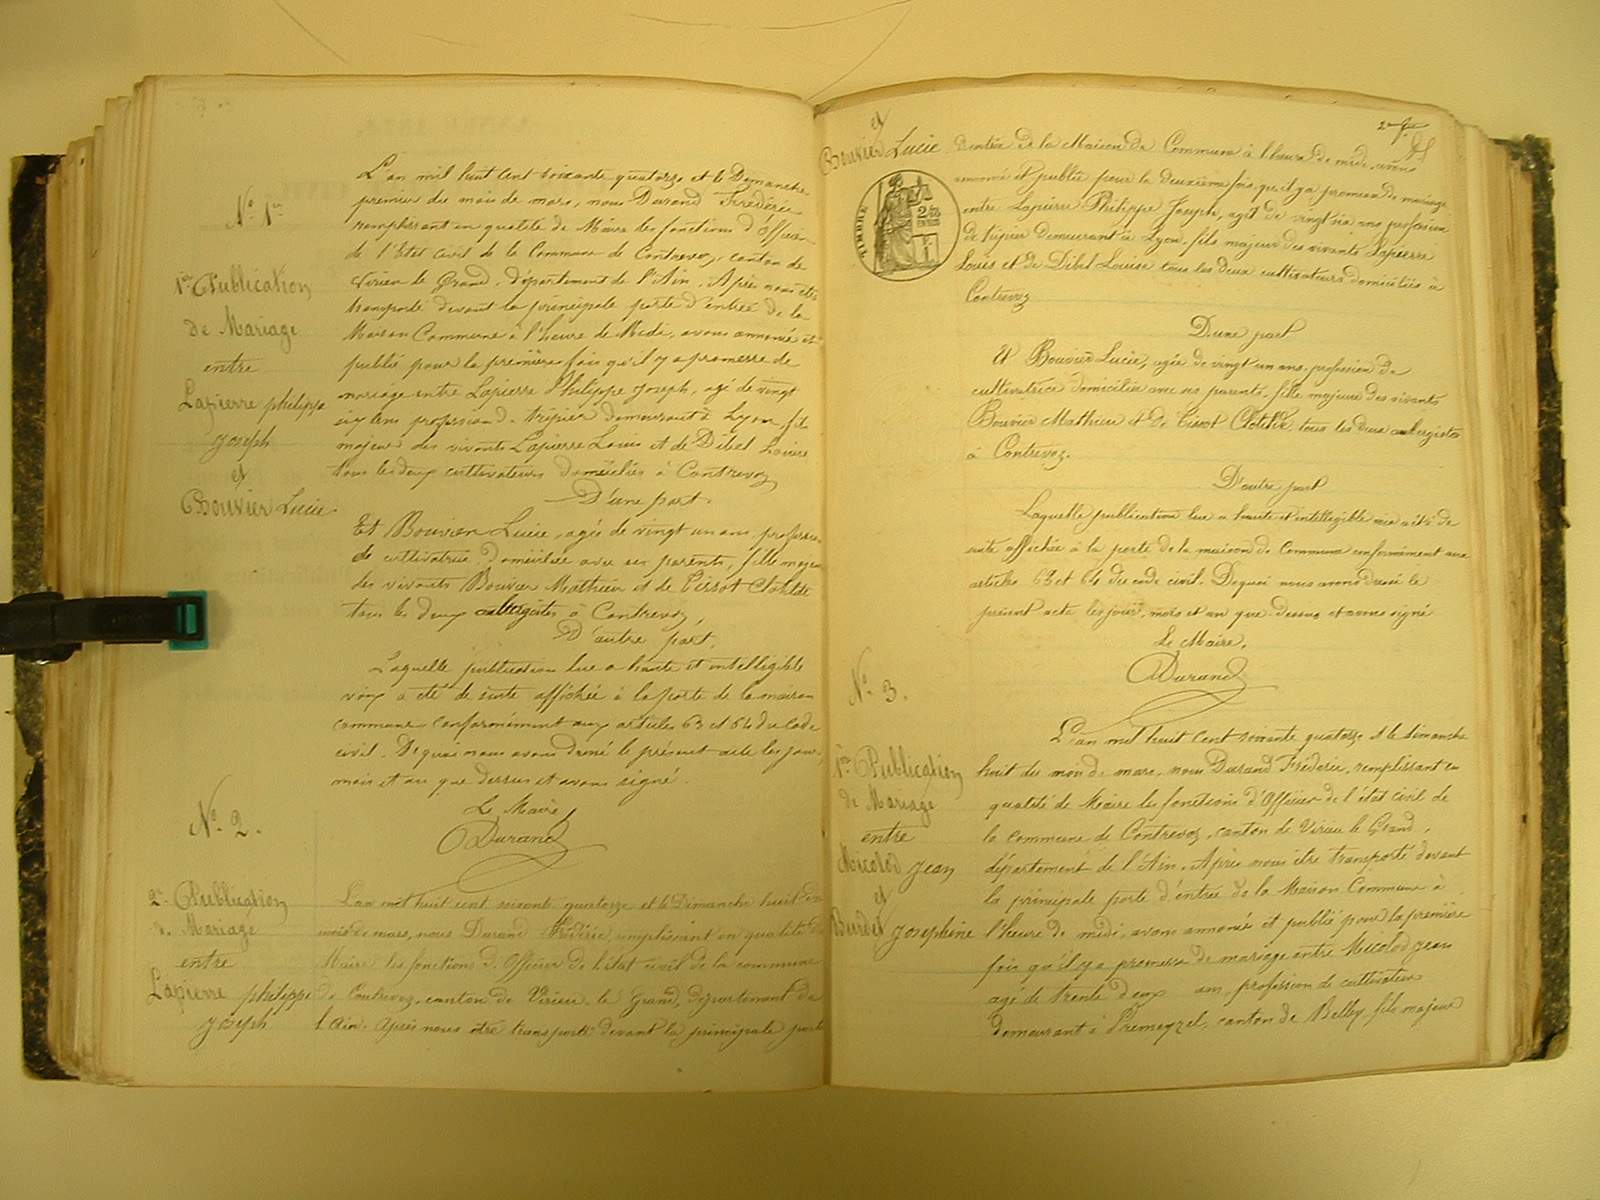 N° 1er
1re Publication
de Mariage
entre
Lapierre philippe
joseph
et
Bouvier Lucie
L'an mil huit cent soixante quatorze et le Dimanche
premier du mois de mars, nous Durand Frédéric
remplissant en qualité de Maire les fonctions d'Officier
de l'Etat civil de la Commune de Contrevoz, canton de
Virieu le Grand, département de l'Ain. Après nous être
transporté devant la principale porte d'entrée de la
Maison Commune à l'heure de Midi, avons annoncé et
publié pour la première fois qu'il y a promesse de
mariage entre Lapierre Philippe Joseph, agé de vingt
six ans profession de tripier demeurant à Lyon, fils
majeur des vivants Lapierre Louis et de Dibel Louise
tous les deux cultivateurs domiciliés à Contrevoz
D'une part.
Et Bouvier Lucie, agée de vingt un ans profession
de cultivatrice domiciliée avec ses parents, fille majeure
des vivants Bouvier Mathieu et de Tissot Clotilde
tous les deux aubergistes à Contrevoz,
D'autre part.
Laquelle publication lue a haute et intelligible
voix a été de suite affichée à la porte de la maison
commune conformément aux articles 63 et 64 du Code
civil. De quoi nous avons dressé le présent acte les jour,
mois et an que dessus et avons signé.
Le Maire
Durand
N° 2.
2e Publication
de Mariage
entre
Lapierre philippe
joseph
L'an mil huit cent soixante quatorze et le Dimanche huit du
mois de mars, nous Durand Frédéric, remplissant en qualité de
Maire les fonctions d'Officier de l'état civil de la commune
de Contrevoz, canton de Virieu le Grand, département de
l'Ain. Après nous être transporté devant la principale porte
2e
et
Bouvier Lucie
TIMBRE
d'entrée de la Maison de Commune à l'heure de midi avons
annoncé et publié pour la deuxième fois qu'il y a promesse de mariage
entre Lapierre Philippe Joseph, agé de vingt six ans profession
de tripier demeurant à Lyon, fils majeur des vivants Lapierre
Louis et de Dibel Louise tous les deux cultivateurs domiciliés à
Contrevoz
D'une part
Et Bouvier Lucie, agée de vingt un ans, profession de
cultivatrice domiciliée avec ses parents, fille majeure des vivants
Bouvier Mathieu et de Tissot Clotilde, tous les deux aubergistes
à Contrevoz.
D'autre part
Laquelle publication lue a haute et intelligible voix a été de
suite affichée à la porte de la maison de Commune conformément aux
articles 63 et 64 du code civil. De quoi nous avons dressé le
présent acte les jour, mois et an que dessus et avons signé
Le Maire,
Durand
N° 3.
1re Publication
de Mariage
entre
Nicolod Jean
et
Burdet Josephine
L'an mil huit cent soixante quatorze et le dimanche
huit du mois de mars, nous Durand Frédéric, remplissant en
qualité de Maire les fonctions d'Officier de l'état civil de
la commune de Contrevoz, canton de Virieu le Grand,
département de l'Ain. Après nous être transporté devant
la principale porte d'entrée de la Maison Commune à
l'heure de midi, avons annoncé et publié pour la première
fois qu'il y a promesse de mariage entre Nicolod Jean
agé de trente deux ans, profession de cultivateur
demeurant à Premeyzel, canton de Belley, fils majeur